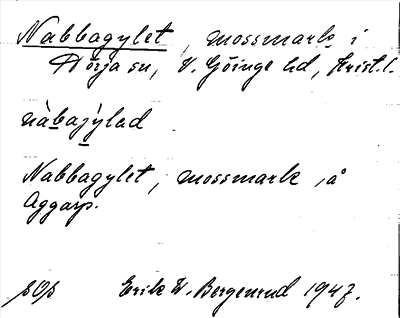 Nabbagylet, mossmark i
Norja sn, V. Göinge hd, Krist. l.
nàbajylad
Nabbagylet, mossmark på
Aggarp.
Erik W. Bergenrud 1947.